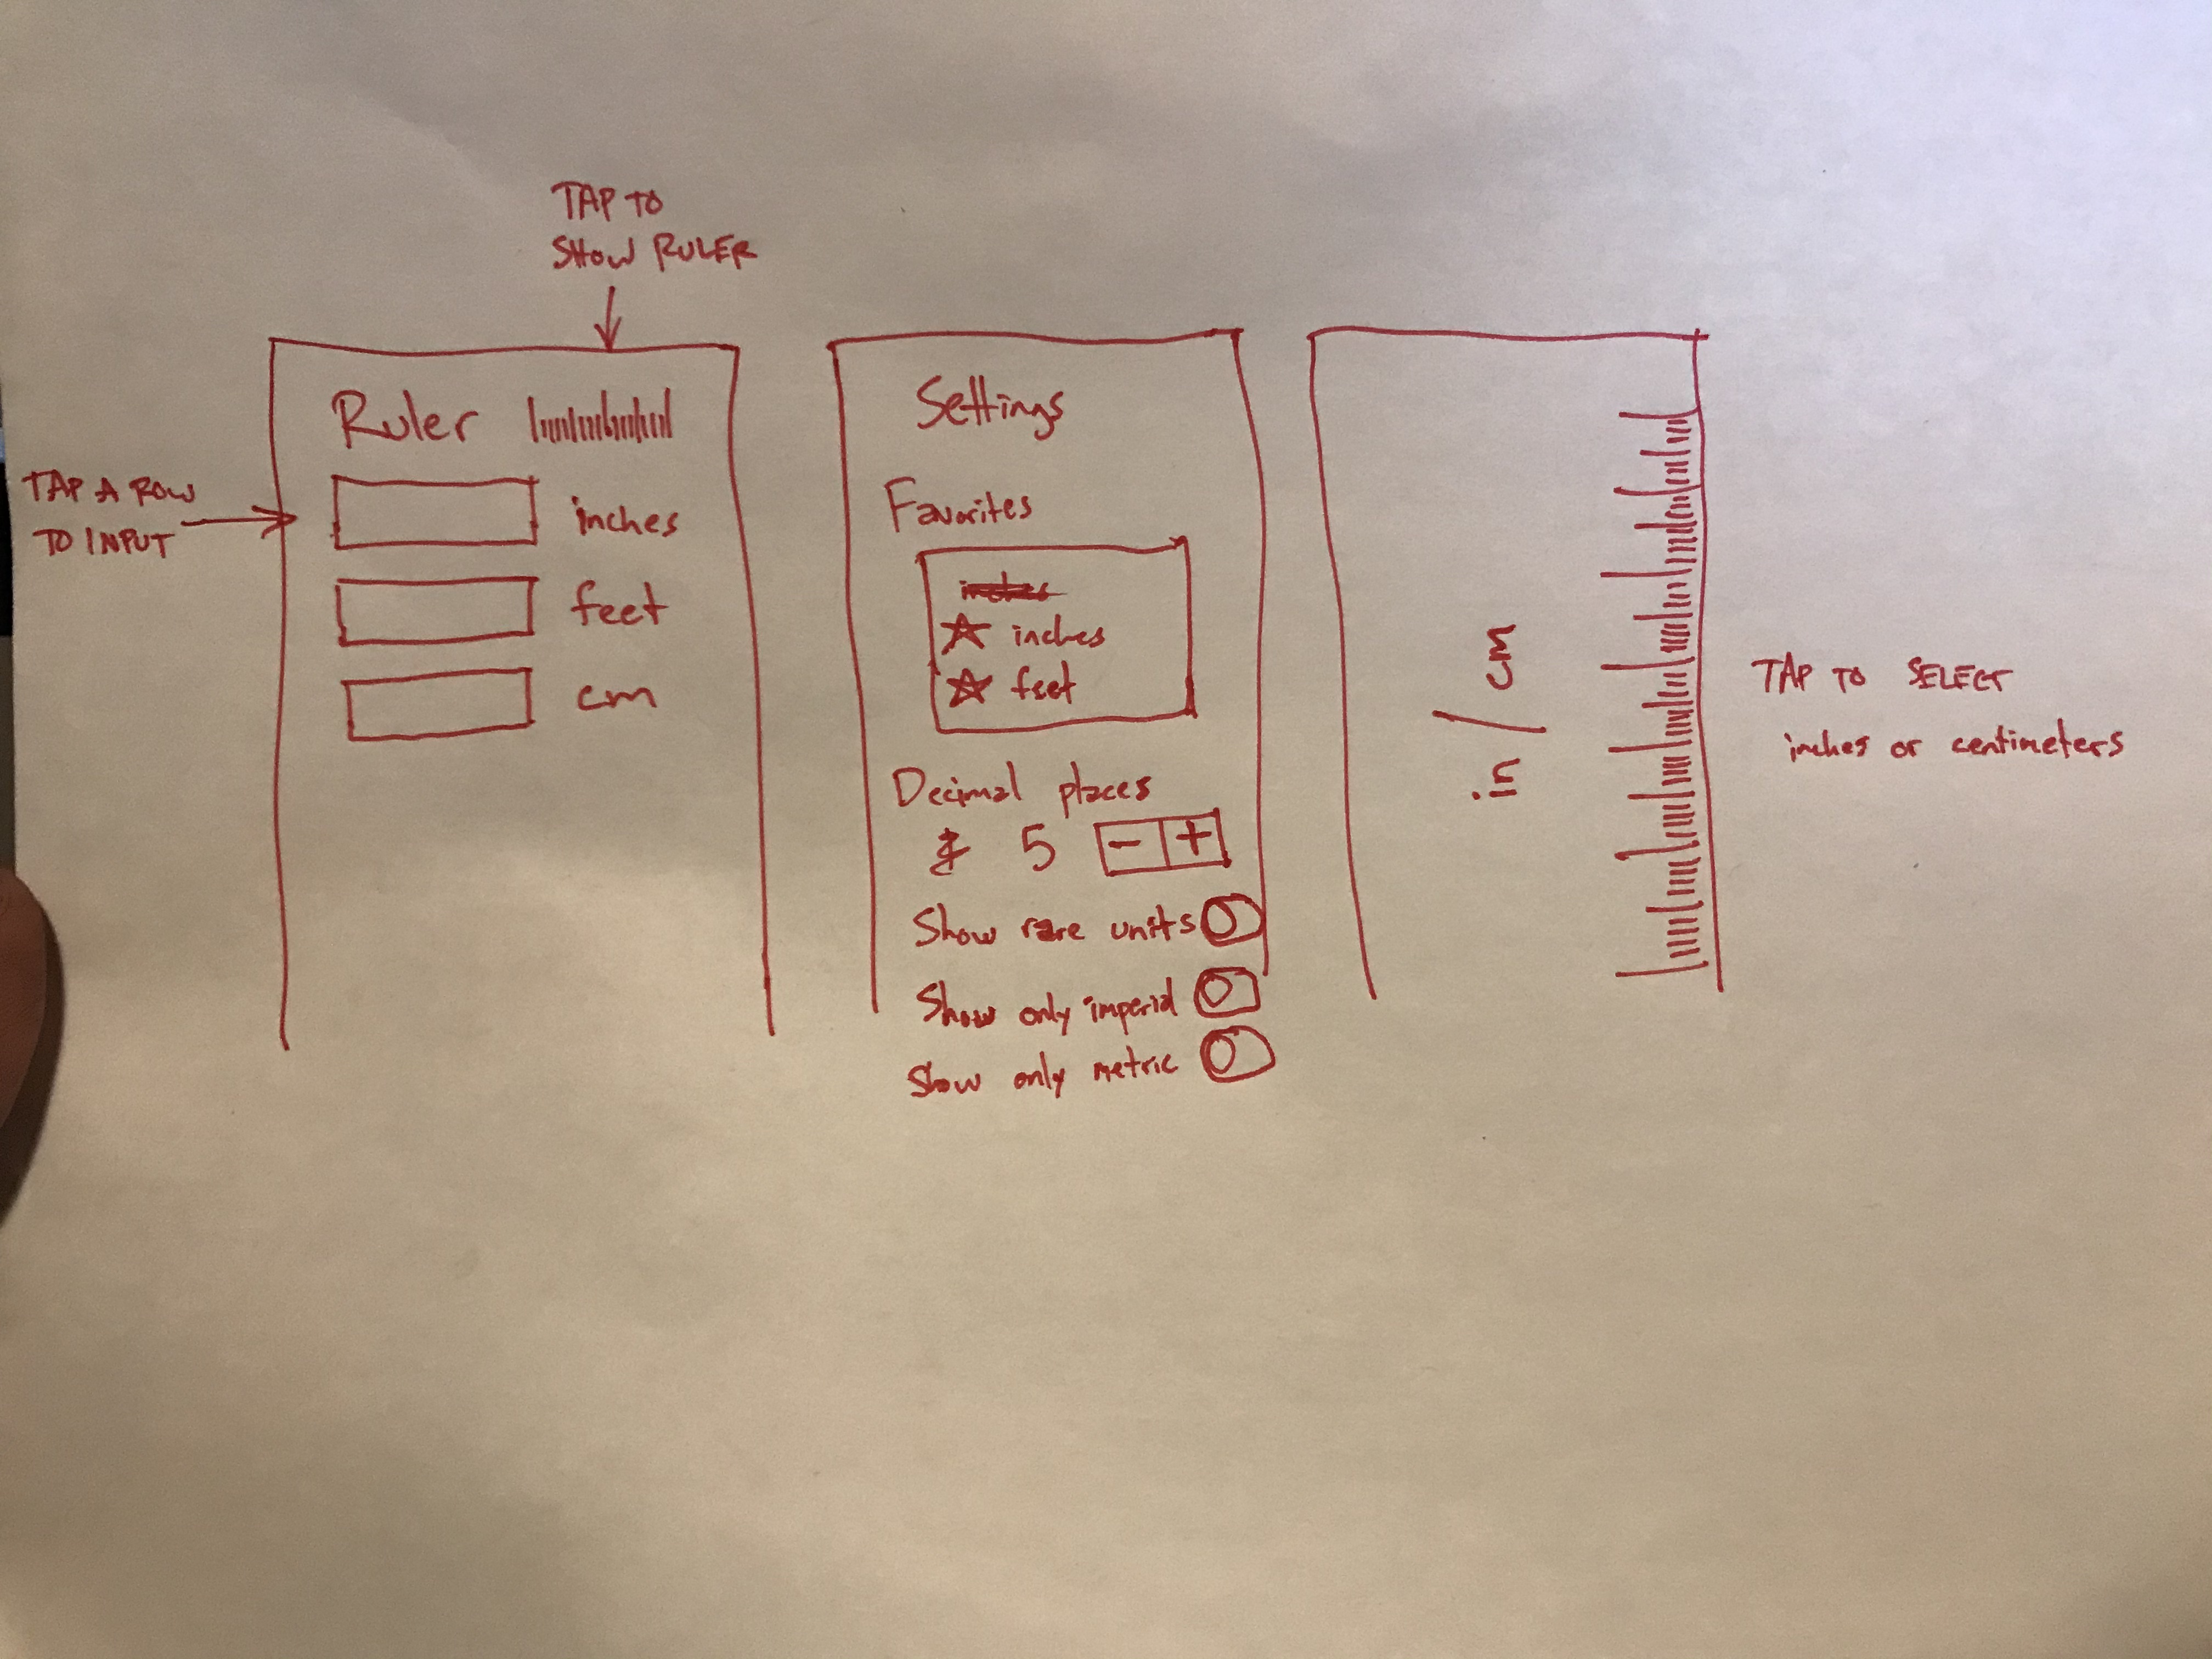 TAP TO
SHOW RULER
TAP A ROW
TO INPUT
Ruler
inches
feet
cm
Settings
Favorites
inches
inches
feet
Decimal places
5 - +
Show rare units
Show only imperial
Show only metric
in / cm
TAP TO SELECT
inches or centimeters